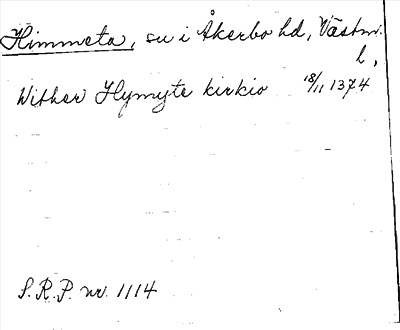 Himmeta, sn i Åkerbo hd, Västm.
l,
Wither Hymyte kirkio 18/11 1374
S.R.P. nr. 1114